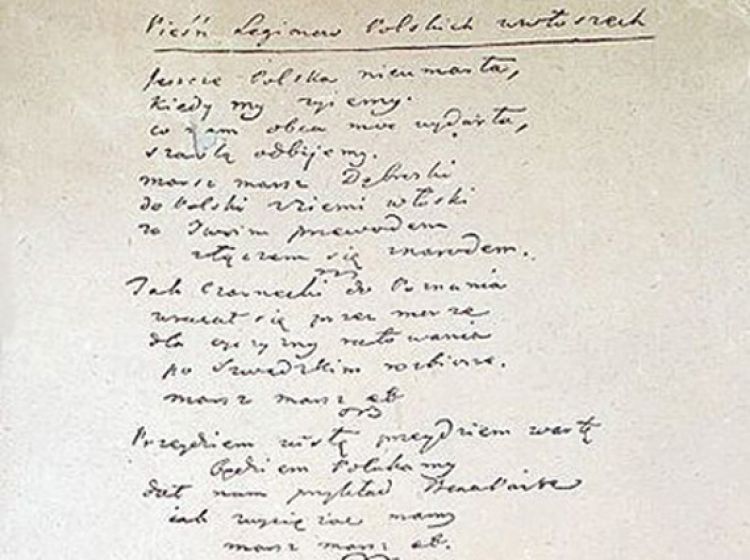 Pieśń Legionow Polskich we włoszech
Jeszcze Polska nieumarła,
kiedy my zyiemy.
co nam obca moc wydarła,
szablą odbijemy.
marsz marsz Dąbroski
do Polski z ziemi włoski
za Twoim przewodem
złączem się z narodem.
Jak Czarnecki do Poznania
wracał się przez morze
dla oyczyzny ratowania
po Szwedzkim rozbiorze.
marsz marsz etc
Przeydziem wisłę przeydziem wartę
będziem Polakamy
dał nam przykład Bonaparte
jak zwyciężac mamy
marsz marsz etc.